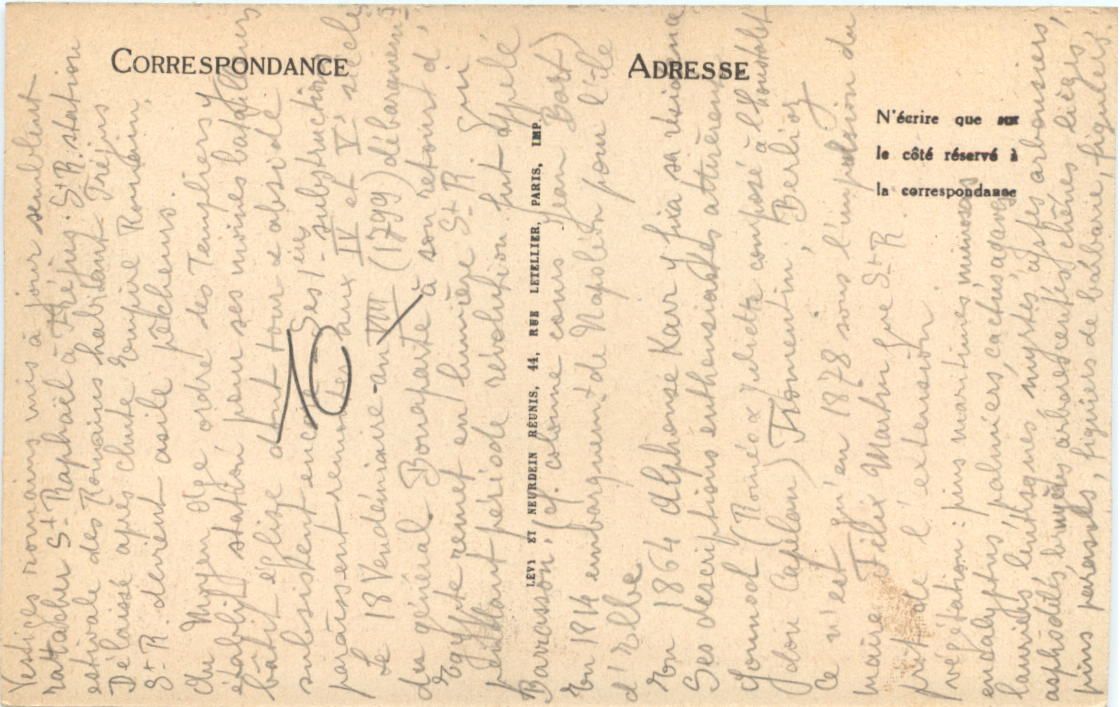 CORRESPONDANCE
ADRESSE
N'écrire que sur
le côté réservé à
la correspondance
LÉVY ET NEURDEIN RÉUNIS, 44, RUE LETELLIER, PARIS, IMP.
Vestiges romains mis à jour semblent
rattacher St Raphaël à Fréjus. St R. station
estivale des Romains habitant Fréjus
Délaissé après chute Empire Romain,
St R. devient asile pêcheurs.
Au Moyen Age ordre des Templiers y
établit station pour ses moines batailleurs
bâtit église dont tour & abside
subsistent encore. Ses 1ères substructions
paraissent remonter aux IV et Ve siècle
Le 18 Vendémiaire an VIII (1799) débarquement
du général Bonaparte à son retour d'
Egypte remet en lumière St R. qui
pendant période révolution fut appelé
Barraston, (cf. colonne cours Jean Bart)
En 1814 embarquement de Napoléon pour l'île
d'Elbe
En 1864 Alphonse Karr y fixa sa résidence
Ses descriptions enthousiastes attirèrent
Gounod (Roméo & Juliette composé à l'houstalet
dou Capelan) Fromentin, Berlioz
Ce n'est qu'en 1878 sous l'impulsion du
maire Félix Martin que St R.
prit de l'extension.
végétation: pins maritimes mimosas
eucalyptus palmiers, cactus agaves
lauriers lentisques myrtes cystes arbousiers
asphodèles bruyères arborescentes, chênes lièges,
pins parasols, figuiers de barbarie, figuiers.
10